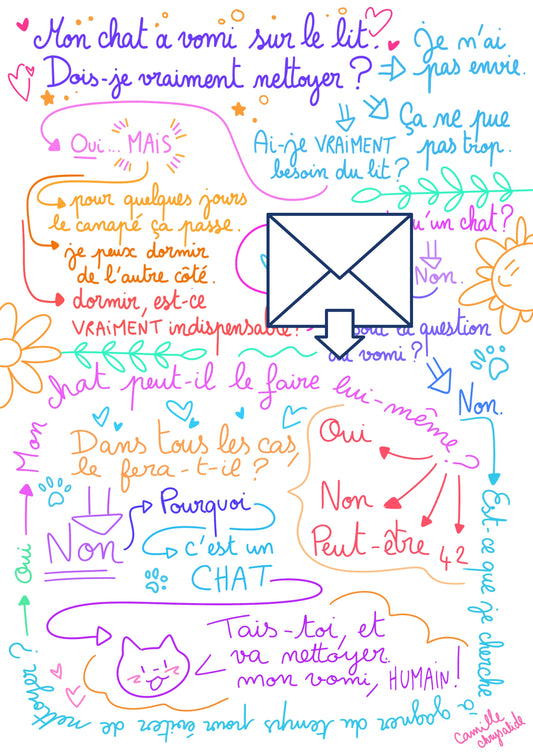 Mon chat a vomi sur le lit.
Dois-je vraiment nettoyer ?
Je n'ai
pas envie.
Ça ne pue
pas trop.
Ai-je VRAIMENT
besoin du lit ?
Oui... MAiS
pour quelques jours
le canapé ça passe.
je peux dormir
de l'autre côté.
dormir, est-ce
VRAIMENT indispensable?
qu'un chat?
Non.
question
vomi ?
Non.
Est-ce que je cherche à
gagner du temps pour éviter de nettoyer ?
Oui
Mon chat peut-il le faire lui-même ?
Oui
Non
Peut-être
42
Dans tous les cas,
le fera-t-il ?
Non
Pourquoi
c'est un
CHAT
Tais-toi, et
va nettoyer
mon vomi, HUMAIN!
camille
chrysalide